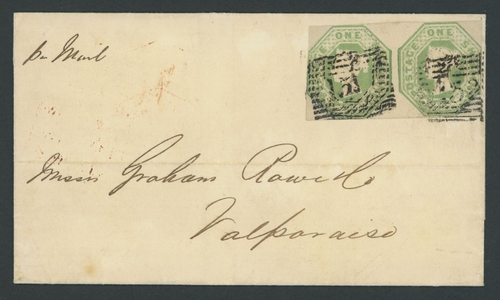 POSTAGE ONE
POSTAGE ONE S
pr Mail
Messrs Graham Rowe & Co
Valparaiso